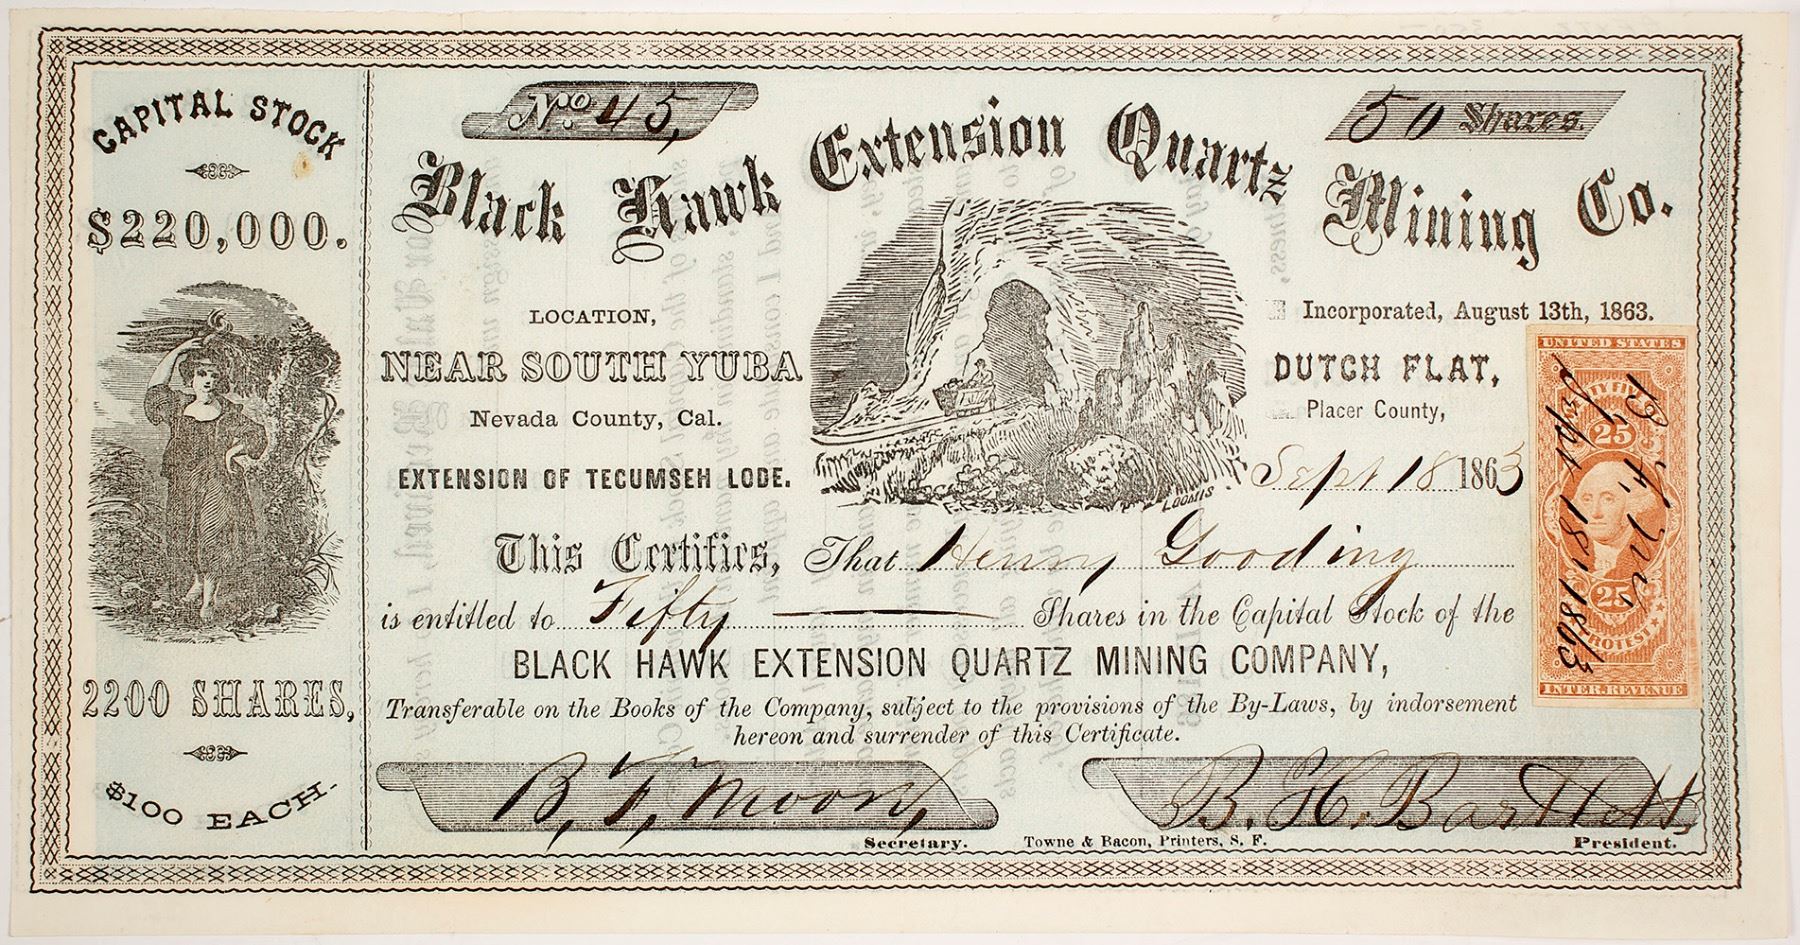 CAPITAL STOCK
$220,000.
2200 SHARES,
$100 EACH.
No. 45,
50 Shares.
Black Hawk Extension Quartz Mining Co.
LOCATION,
NEAR SOUTH YUBA
Nevada County, Cal.
EXTENSION OF TECUMSEH LODE.
LOOMIS
Incorporated, August 13th, 1863.
DUTCH FLAT,
Placer County,
Sept 18 1863
This Certifies, That Henry Gooding
is entitled to Fifty Shares in the Capital Stock of the
BLACK HAWK EXTENSION QUARTZ MINING COMPANY,
Transferable on the Books of the Company, subject to the provisions of the By-Laws, by indorsement
hereon and surrender of this Certificate.
B, F, Moon,
Secretary.
Towne & Bacon, Printers, S. F.
B. H. Bartlett,
President.
UNITED STATES
25
25
PROTEST
INTER. REVENUE
Sept 18 1863